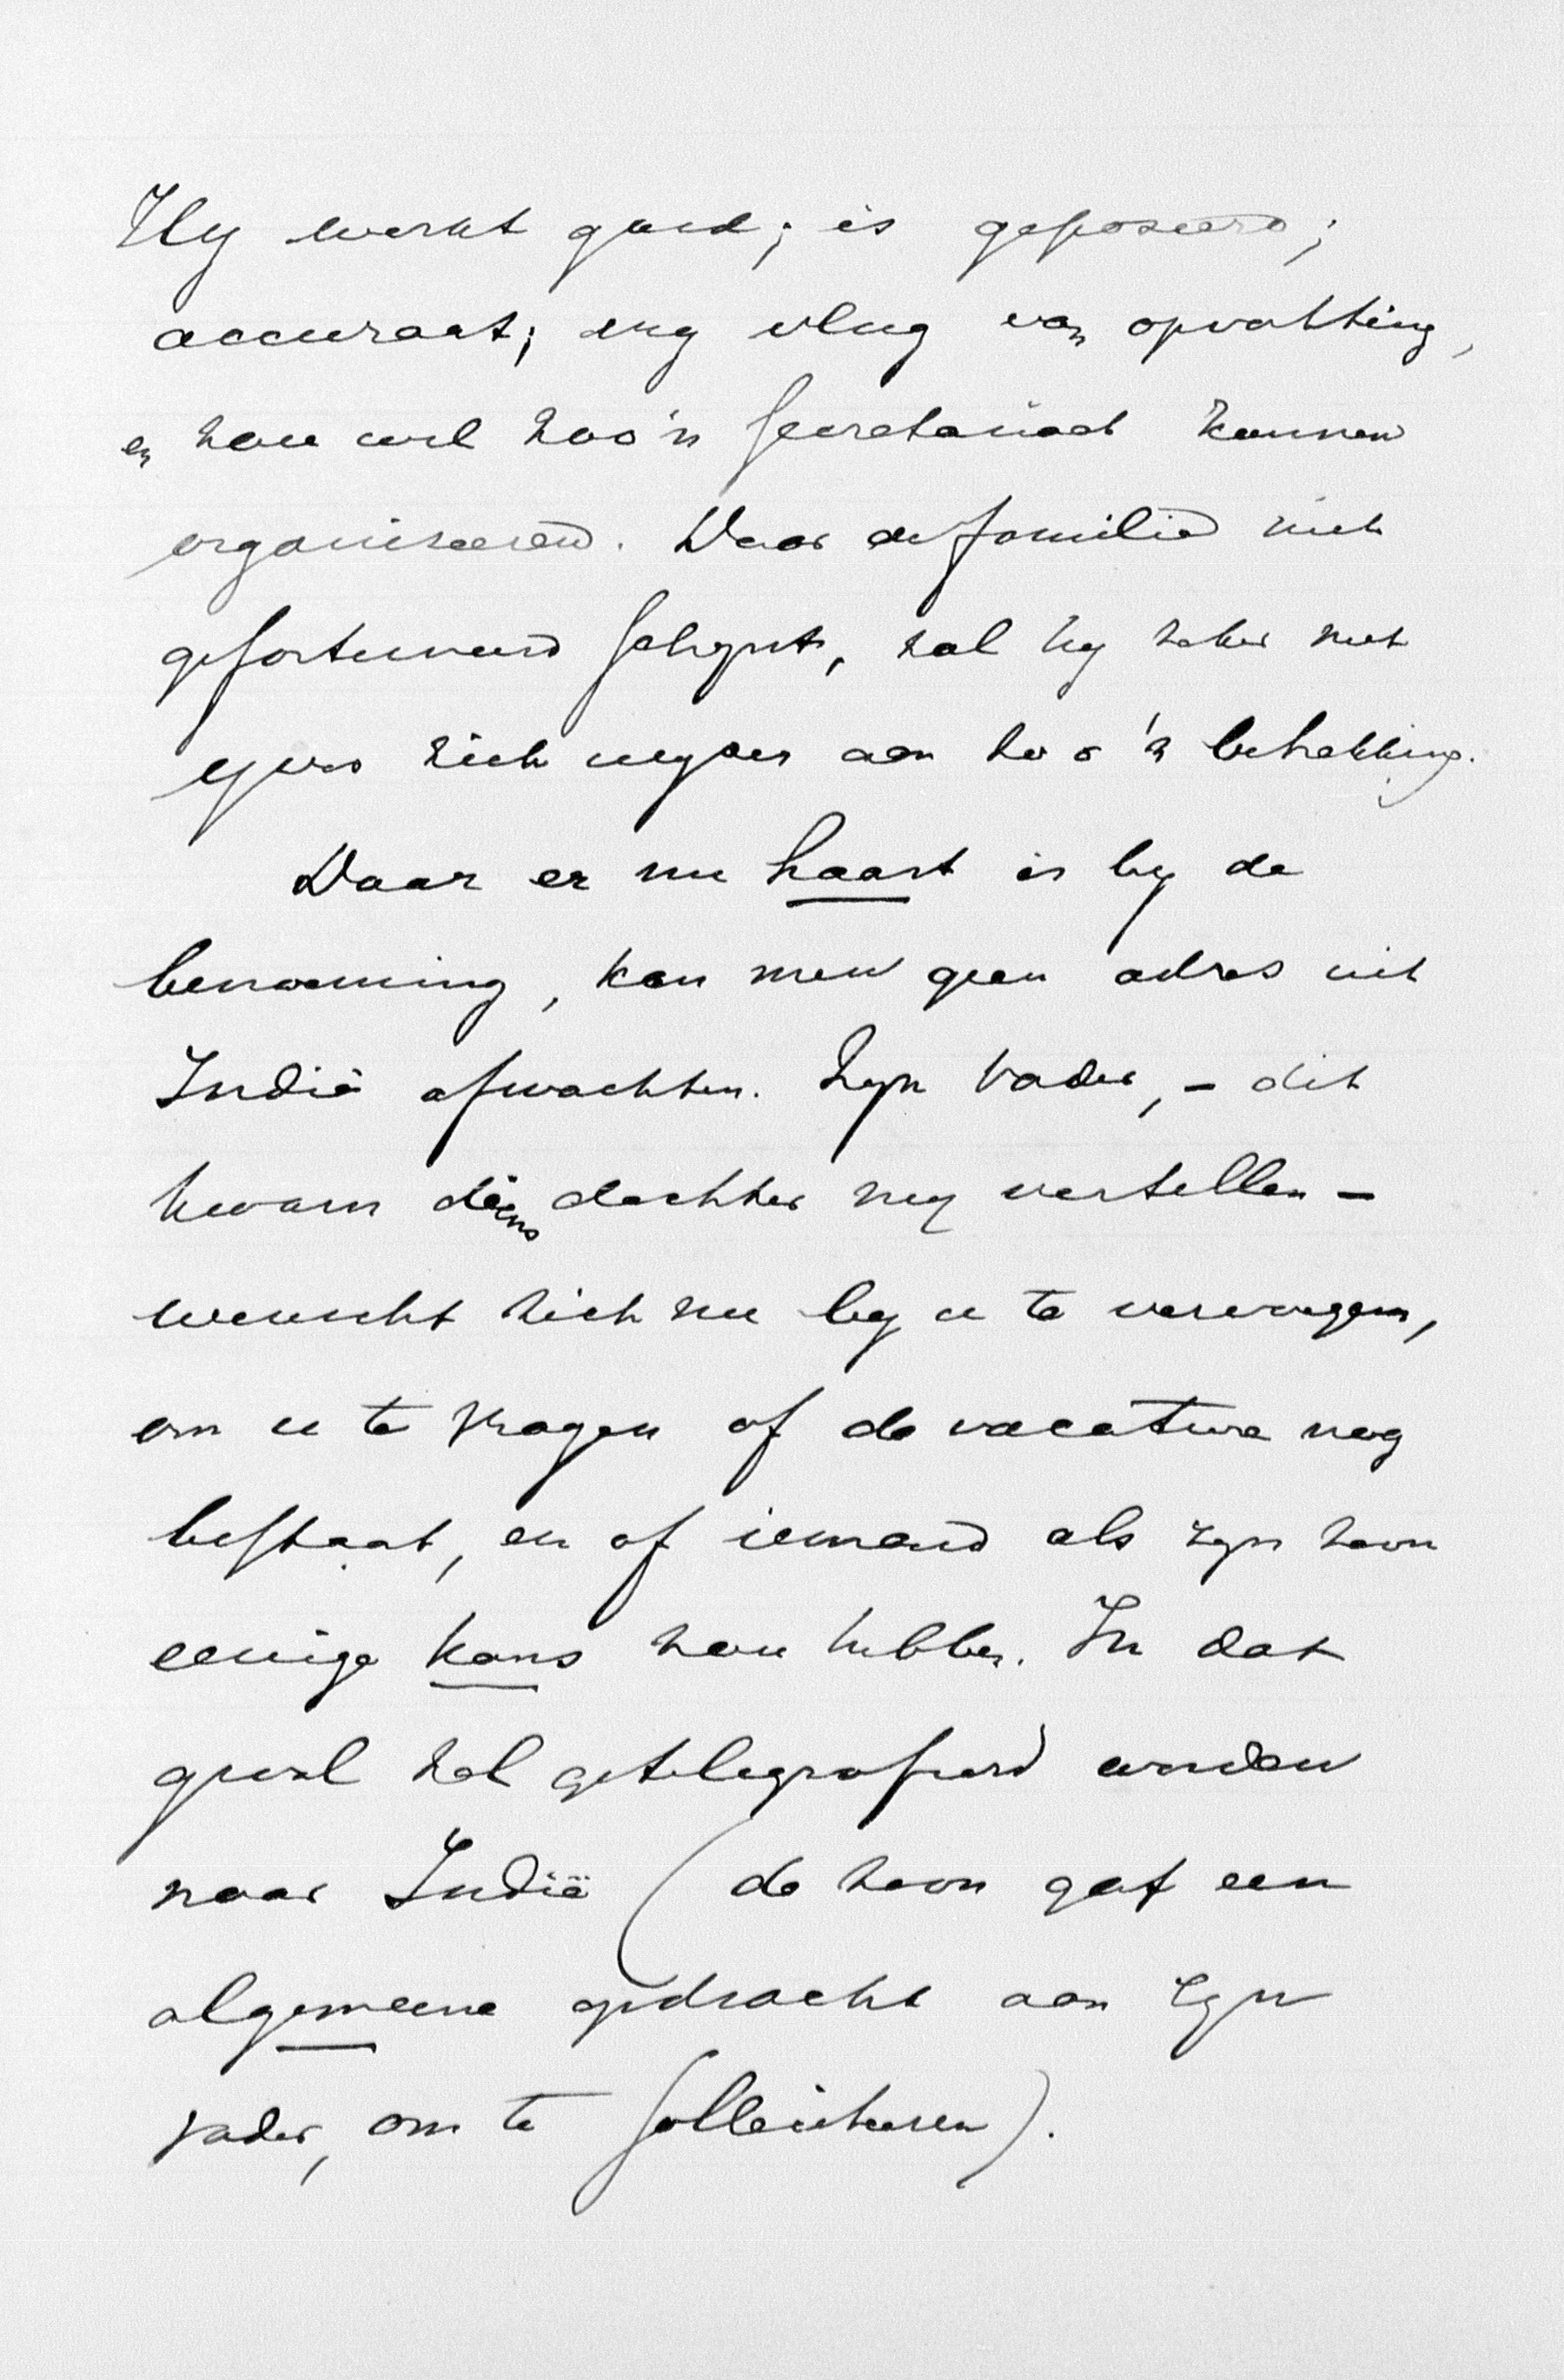 Hy werkt goed; is geposeerd;
accuraat; erg vlug van opvatting,
en zou wel zoo'n secretariaat kunnen
organiseeren. Daar de familie niet
gefortuneerd schynt, zal hy zeker met
yver zich wyden aan zoo'n betrekking.
Daar er nu haast is by de
benoeming, kan men geen adres uit
Indië afwachten. Zyn vader, – dit
kwam diens dochter my vertellen –
wenscht zich nu by u te vervoegen,
om u te vragen of de vacature nog
bestaat, en of iemand als zyn zoon
eenige kans zou hebben. In dat
geval zal getelegrafeerd worden
naar Indië (de zoon gaf een
algemeene opdracht aan zyn
vader, om te solliciteeren).